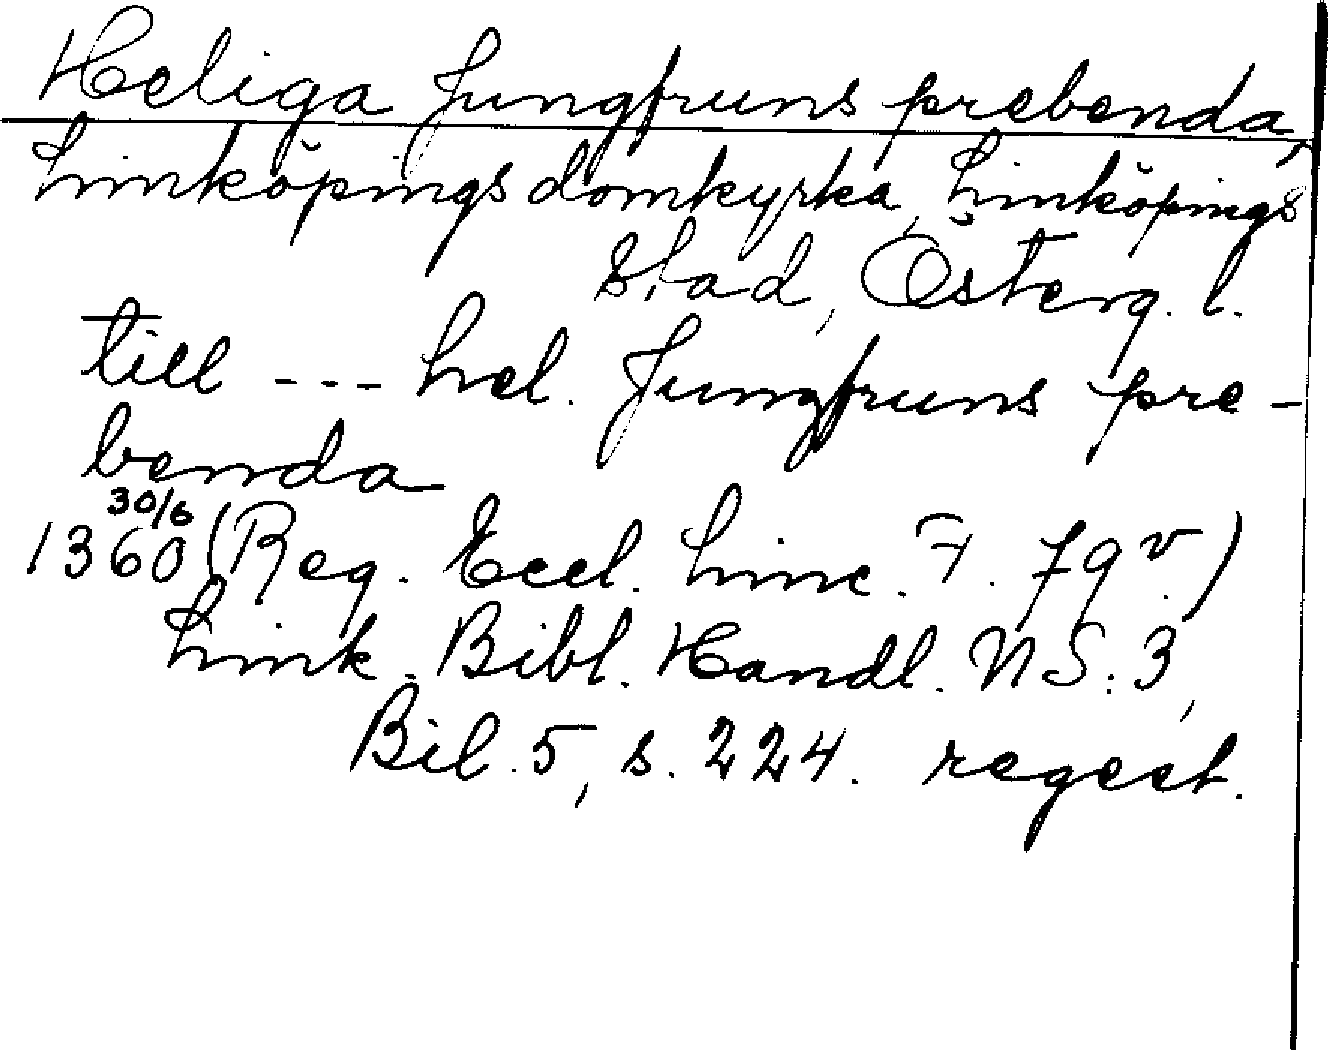 Heliga Jungfruns prebenda,
Linköpings domkyrka, Linköpings
stad, Österg. l.
till --- hel. Jungfruns pre-
benda
30/6
1360 (Reg. Eccl. Linc. F. 79v.)
Link. Bibl. Handl. NS: 3,
Bil. 5, s. 224. regest.